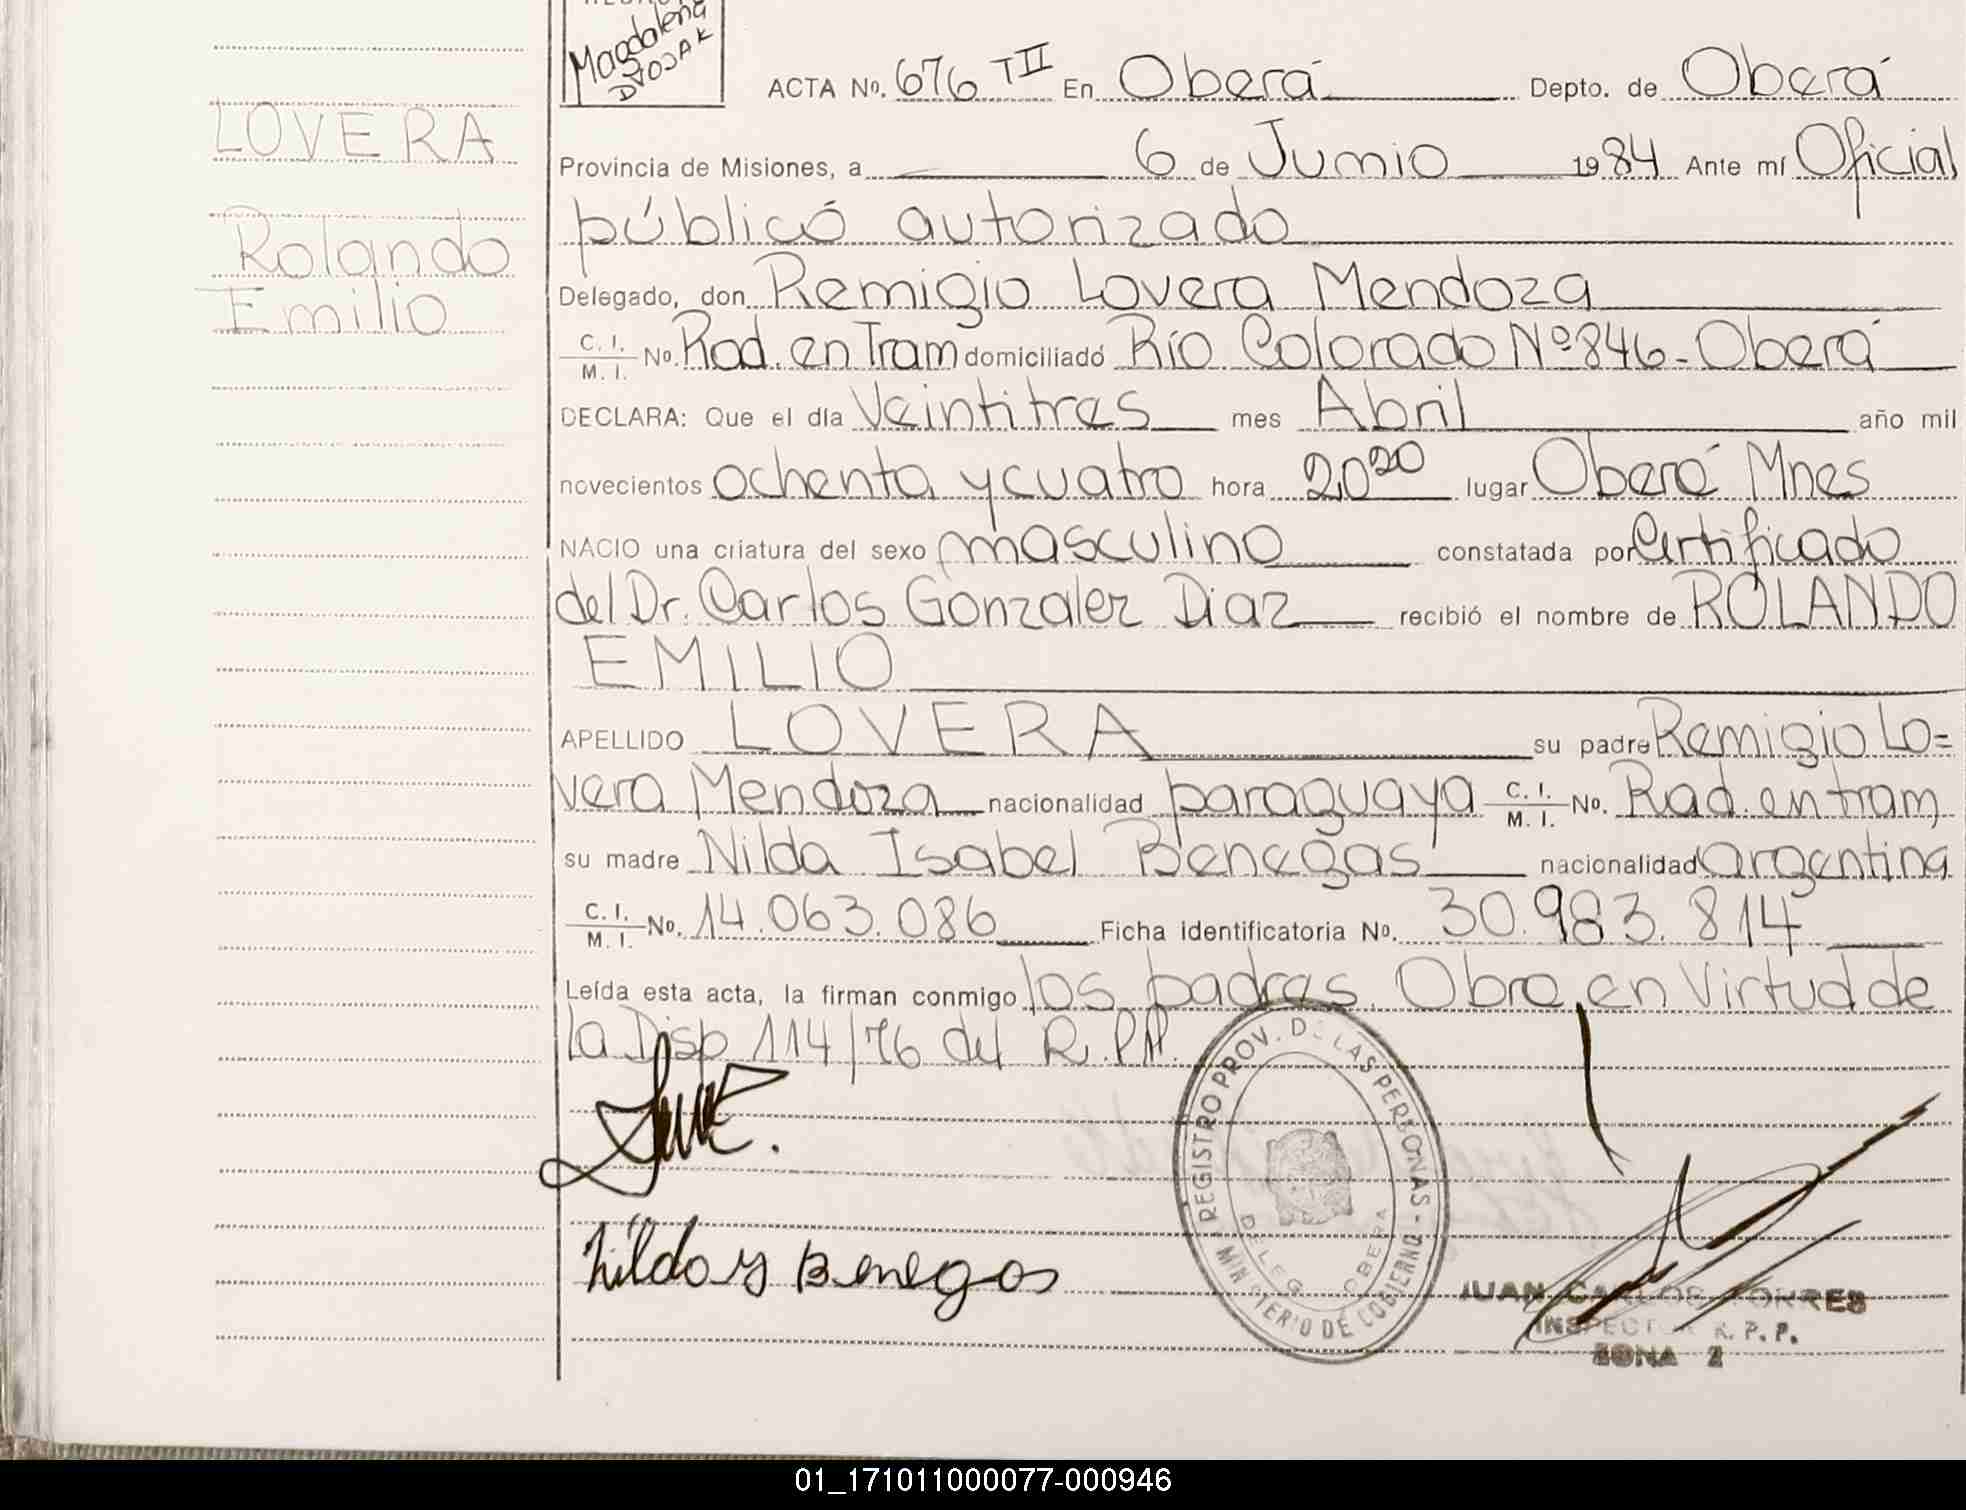 Magdalena
DVOJAK
ACTA No. 676 TII En Oberá Depto. de Oberá
LOVERA
Provincia de Misiones, a 6 de Junio 1984 Ante mí Oficial
públicó autorizado
Rolando
Emilio
Delegado, don Remigio Lovera Mendoza
C. I. / M. I. No. Rad. en Tram domiciliado Río Colorado Nº 846 - Oberá
DECLARA: Que el día Veintitres mes Abril año mil
novecientos ochenta y cuatro hora 20 20 lugar Oberá Mnes
NACIO una criatura del sexo masculino constatada por Certificado
del Dr. Carlos Gonzalez Diaz recibió el nombre de ROLANDO
EMILIO
APELLIDO LOVERA su padre Remigio Lo=
vera Mendoza nacionalidad paraguaya C. I. / M. I. No. Rad. en tram,
su madre Nilda Isabel Benegas nacionalidad argentina
C. I. / M. I. No. 14.063.086 Ficha identificatoria No. 30.983.814
Leída esta acta, la firman conmigo los padres. Obro en Virtud de
la Disp 114/76 del R.P.P.
REGISTRO PROV. DE LAS PERSONAS - MINISTERIO DE GOBIERNO
DELEG. OBERA
Nilda Y Benegas
JUAN CARLOS TORRES
INSPECTOR R. P. P.
ZONA 2
01_171011000077-000946